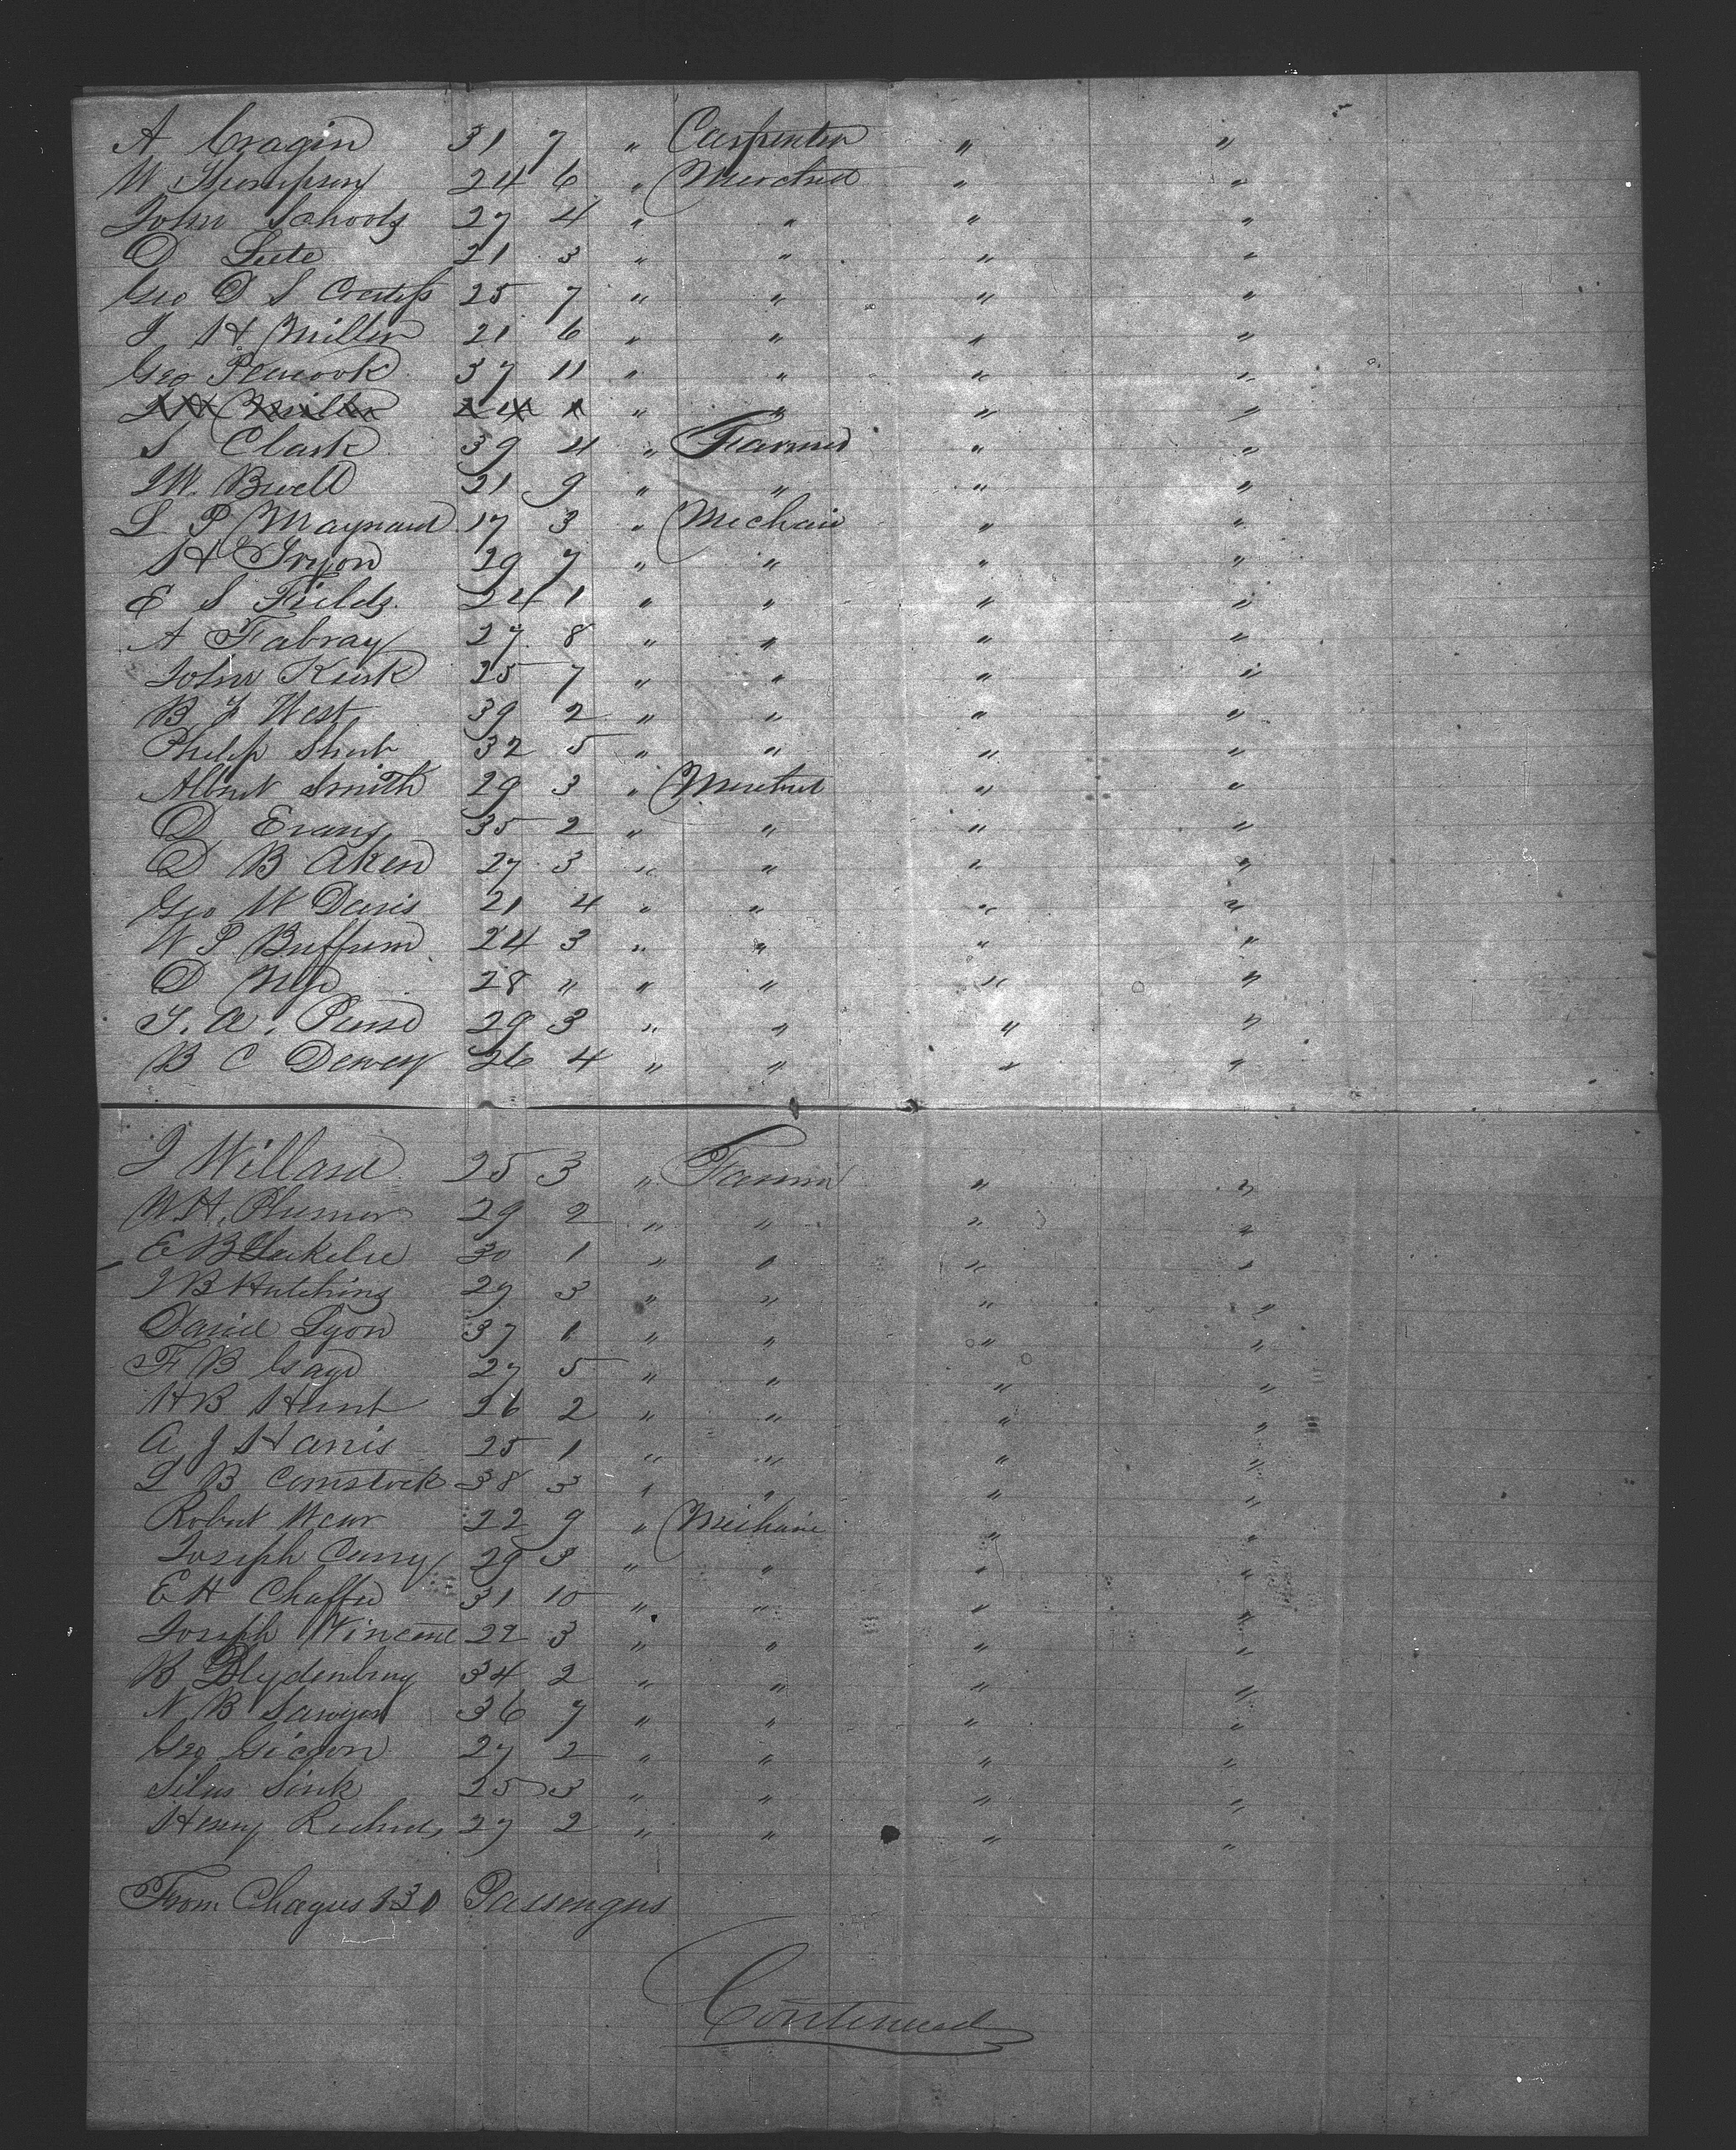 A Cragin 31 7 " Carpenter " "
W Thompson 24 6 " Merchnt " "
John Schools 27 4 " " " "
D Lete 21 3 " " " "
Geo D S 25 7 " " " "
J H Miller 21 6 " " " "
Geo Peacook 37 11 " " " "
Miller " " " "
S Clark 39 4 " Farmer " "
J W. Buell 21 9 " " " "
L P Maynard 17 3 " Mechanic " "
H Tryon 29 7 " " " "
E S Fields 24 1 " " " "
A Fabray 27 8 " " " "
John Kirk 25 7 " " " "
B F West 39 2 " " " "
Philip Shub 32 5 " " " "
Albert Smith 29 3 " Merchnt " "
D Evans 35 2 " " " "
D B Aken 27 3 " " " "
Geo W Davis 21 4 " " " "
W P Buffum 24 3 " " " "
D Nye 28 " " " " "
T. A. Pease 29 3 " " " "
B C Dewey 26 4 " " " "
J Willard 25 3 " Farmer " "
W. H. Plumer 29 2 " " " "
E B 30 1 " " " "
J B Hutchins 27 3 " " " "
David Lyon 37 1 " " " "
F B Gage 27 5 " " " "
H B Hunt 26 2 " " " "
A J Harris 25 1 " " " "
L B Comstock 38 3 " " " "
Robert Wear 22 9 " Mechanic " "
Joseph Curry 29 3 " " " "
E H Chaffee 31 10 " " " "
Joseph Vincent 22 3 " " " "
B Blydenburg 34 2 " " " "
N B Sawyer 36 7 " " " "
Geo Gideon 27 2 " " " "
Silas Sink 25 3 " " " "
Henry Richards 27 2 " " " "
From Chagres 130 Passengers
Continued